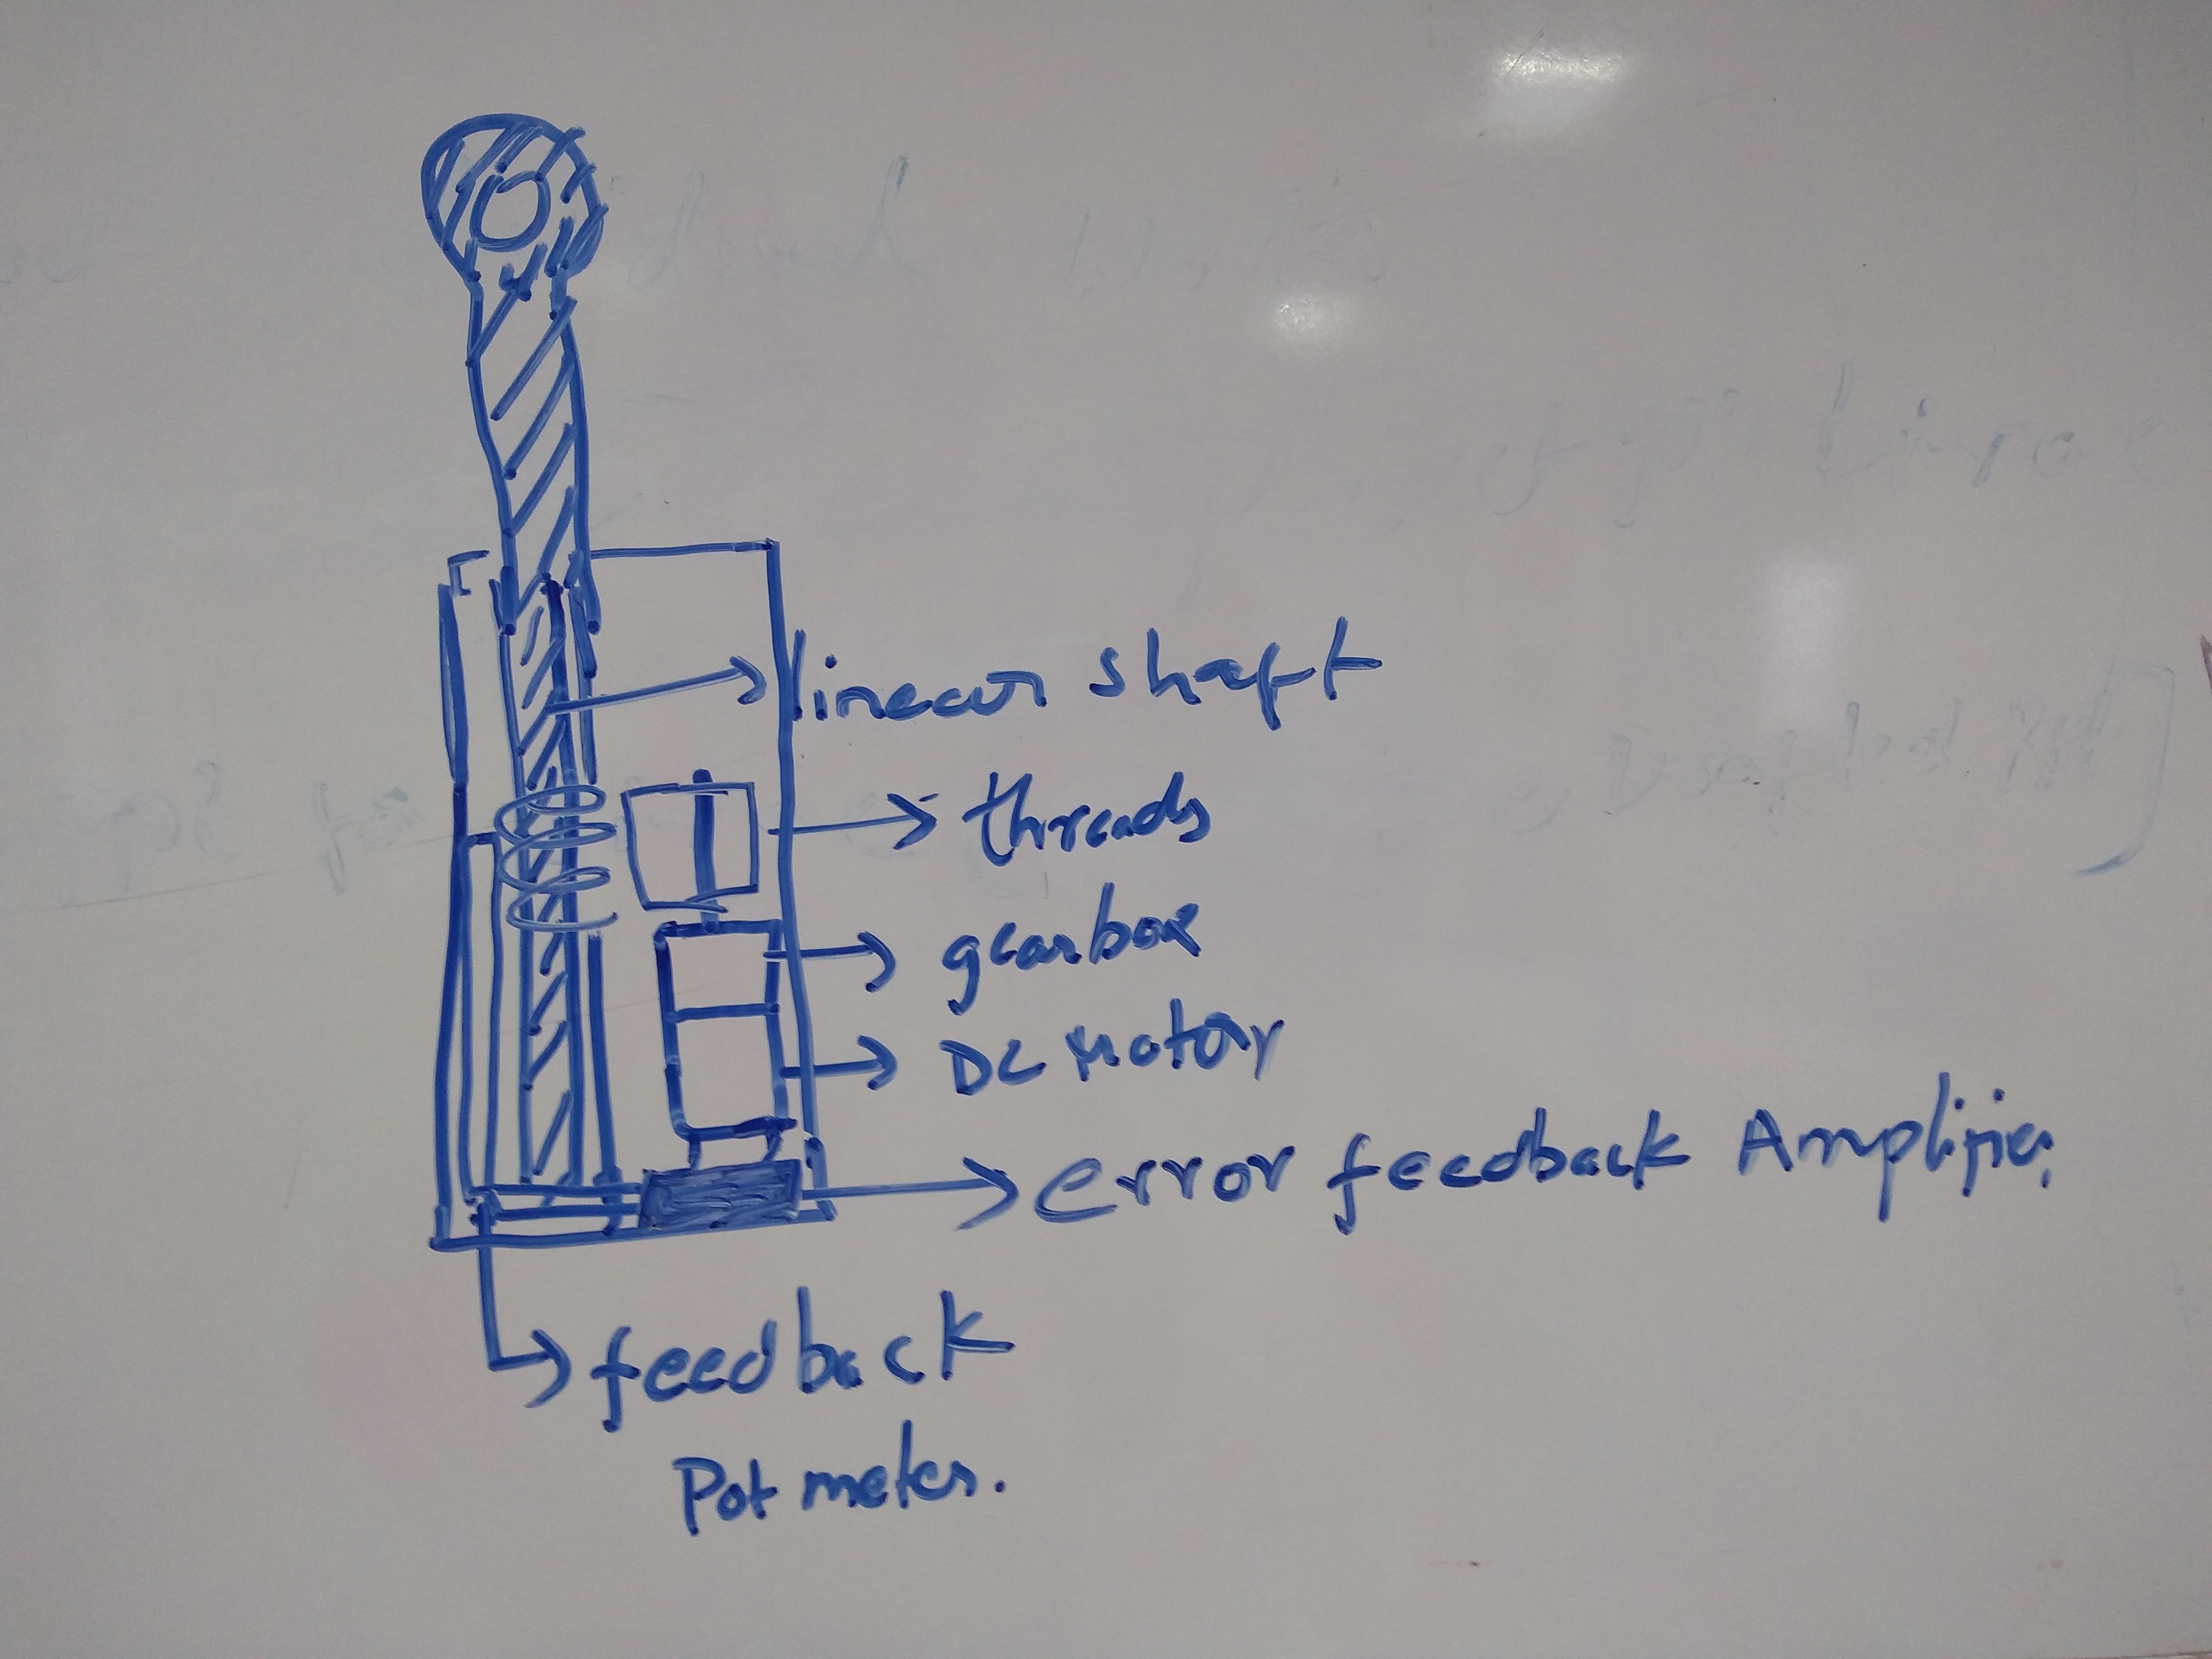 linear shaft
threads
gearbox
DC Motor
error feedback Amplifier
feedback
Pot meter.